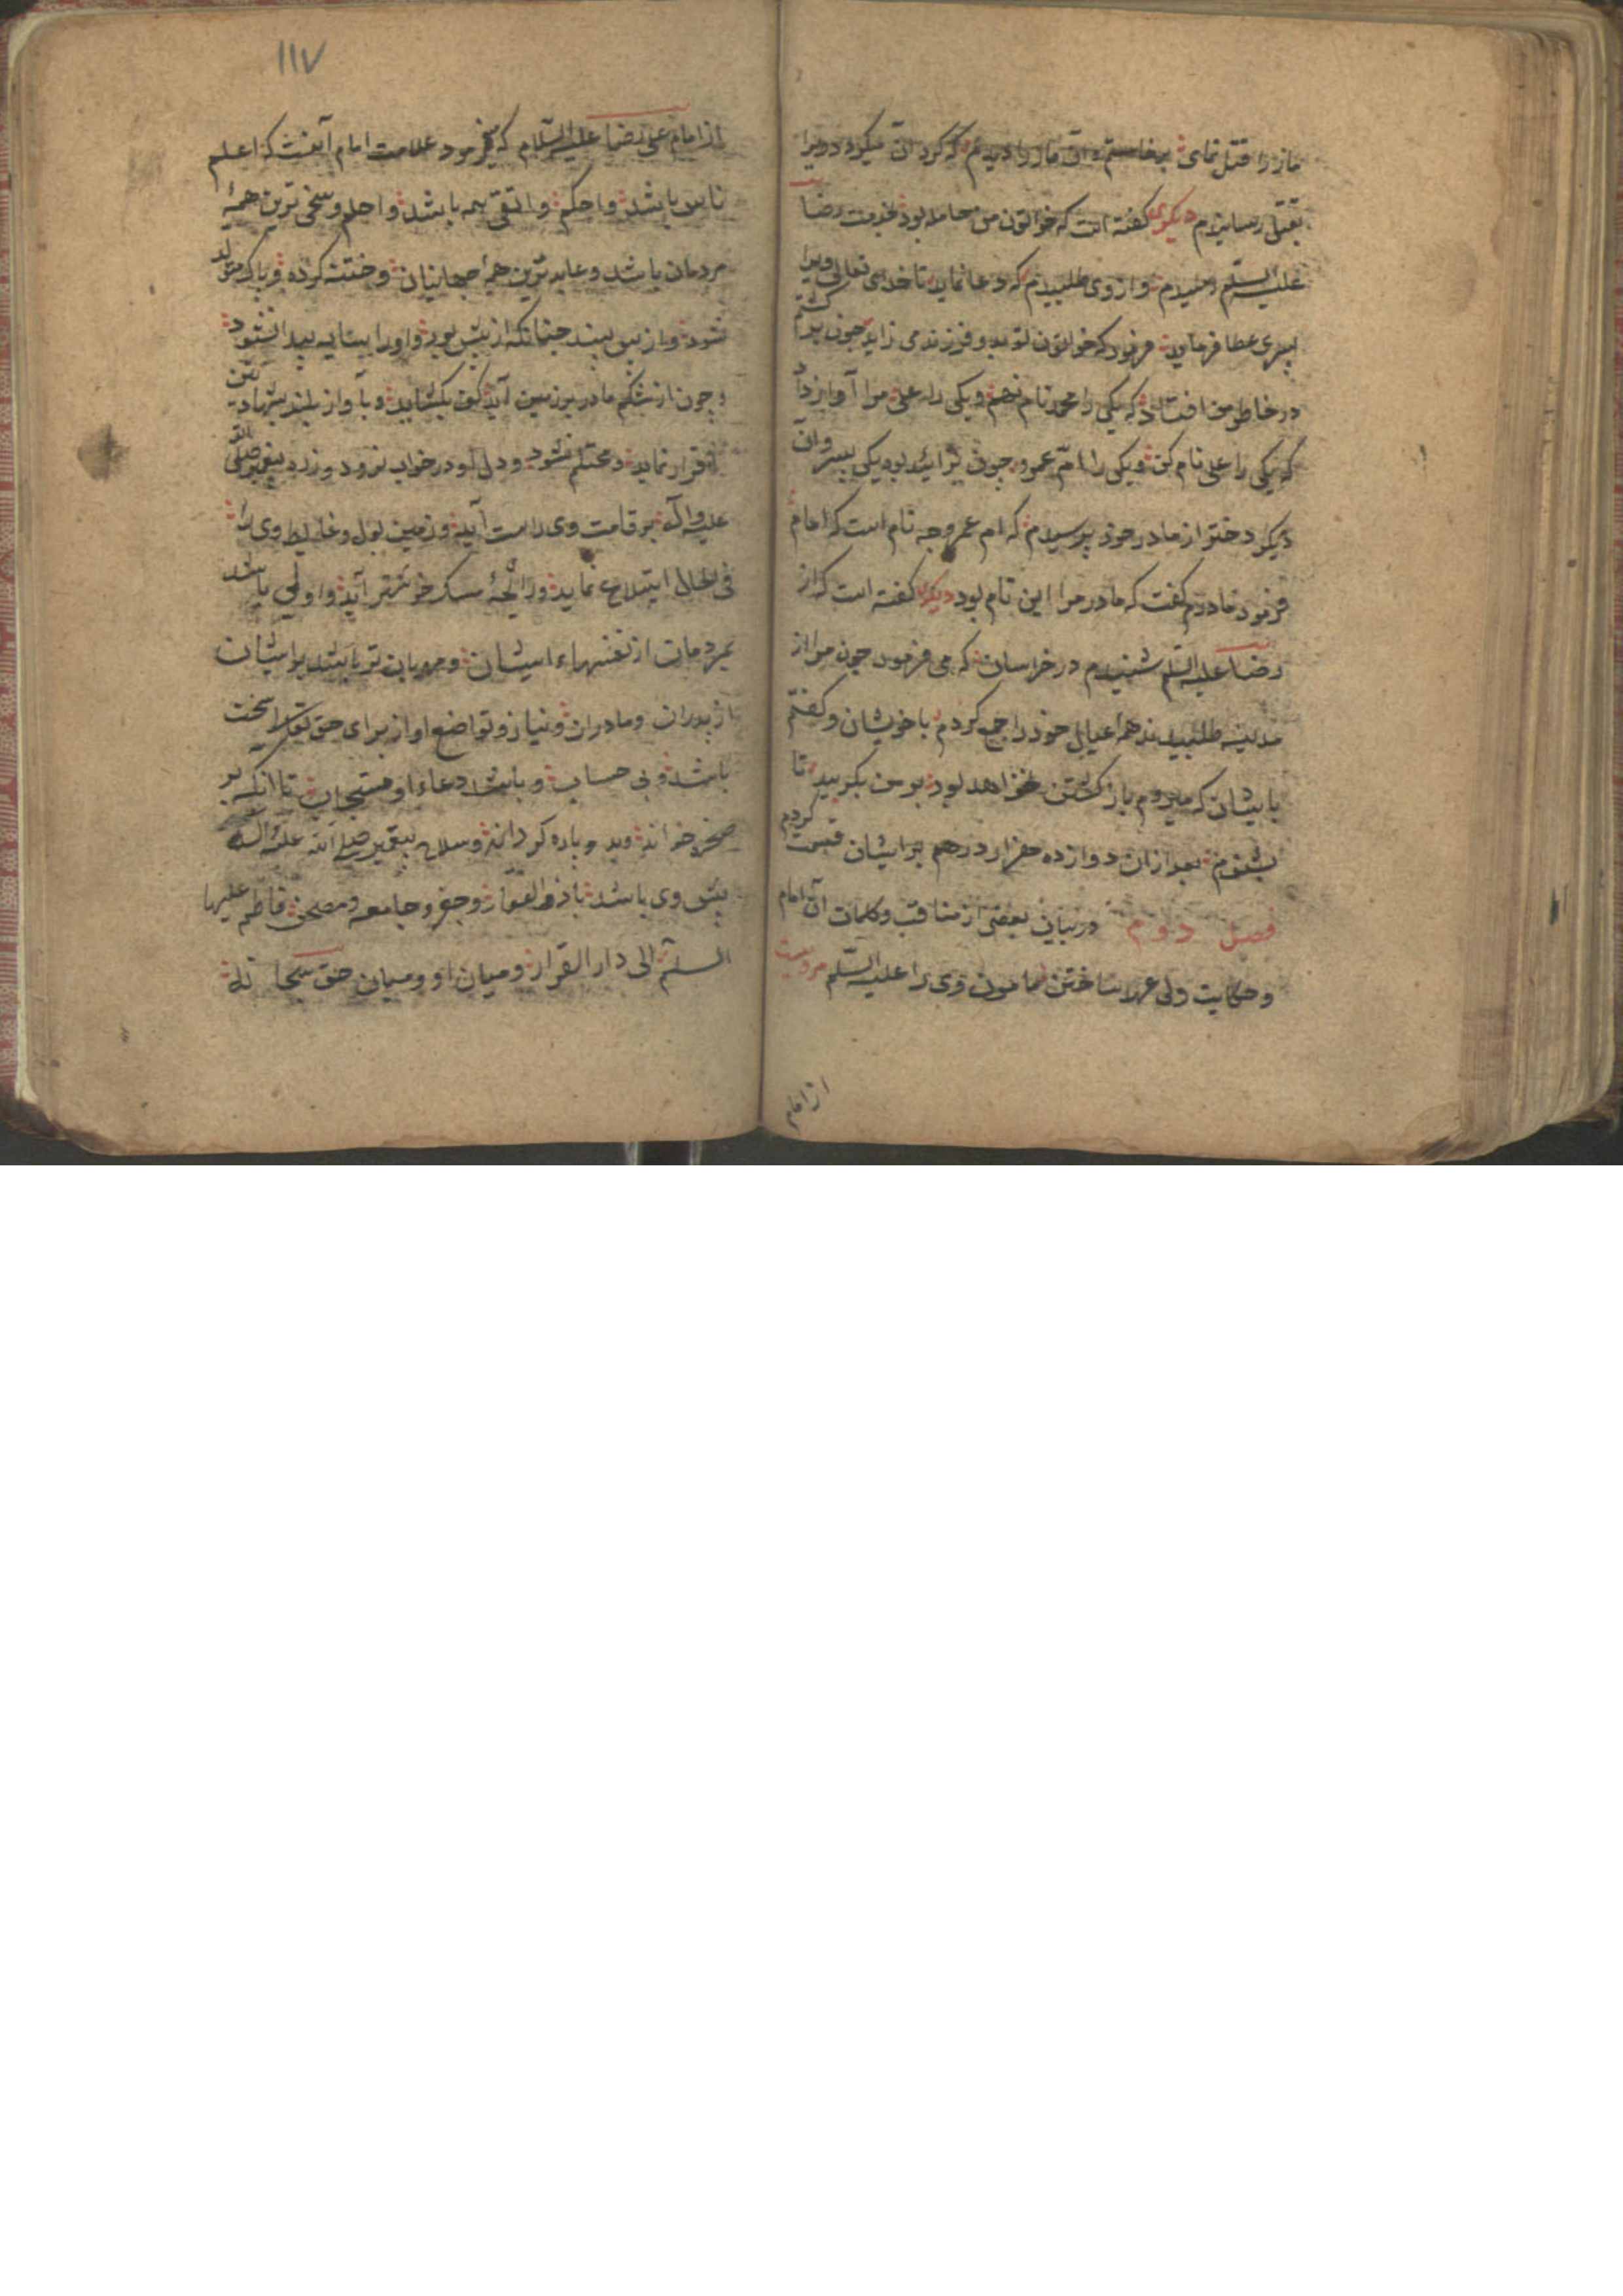 مار را قتل نمای برخاستم و آن مار را دیدم که گرد آن میگردد ویرا
بقتل رسانیدم دیگری گفته است که خواتون من حامله بود بخدمت رضا
علیه السلم رسیدم و از وی طلبیدم که دعا نماید تا خدای تعالی ویرا
پسری عطا فرماید فرمود که خواتون تو دو فرزند می زاید چون برگشتم
در خاطر من افتاد که یکی را محمد نام نهم و یکی را علی مرا آواز داد
که یکی را علی نام کن و یکی را ام عمرو چون بزائید بود یکی پسر و آن
دیگر دختر از مادر خود پرسیدم که ام عمرو چه نام است که امام
فرمود مادرم گفت که مادر مرا این نام بود دیگری گفته است که از
رضا علیه السلم شنیدم در خراسان که می فرمود چون مرا از
مدینه طلبیدند همه عیال خود را جمع کردم با خویشان و گفتم
بایشان که میروم باز گشتن نخواهد بود بر من بگریید تا
بشنوم بعد ازان دوازده هزار درهم بر ایشان قسمت کردم
فصل دوم در بیان بعضی از مناقب و کلمات آن امام
و حکایت ولی عهد ساختن مامون وی را علیه السلم مرویست
از امام
١١٧
از امام علی رضا علیه السلام که میفرمود علامت امام آنست که اعلم
ناس باشد و احکم و اتقی همه باشد و احلم و سخی ترین همهٔ
مردمان باشد و عابد ترین همهٔ جهانیان و ختنه کرده و پاک متولد
شود و از پس بیند چنانکه از پیش بود و او را سایه پیدا نشود
و چون از شکم مادر بر زمین آید کف بگشاید و بآواز بلند بشهادتین
اقرار نماید و محتلم نشود و دل او در خواب نرود و زره پیغمبر صلی الله
علیه و آله بر قامت وی راست آید و زمین بول و غایط وی را
فی الحال ابتلاع نماید و رائحهٔ مسک خوشتر آید و اولی باشد
بمردمان از نفسهاء ایشان و مهربان تر باشد بر ایشان
از پدران و مادران و نیاز و تواضع او از برای حق تعالی سخت
باشد و بی حساب و باشد دعاء او مستجاب تا آنکه بر
صخره خواند و بدو پاره گرداند و سلاح پیغمبر صلی الله علیه و آله
پیش وی باشد با ذو الفقار و جفر و جامعه و مصحف فاطمه علیها
السلم الی دار القرار و میان او و میان حق سبحانه